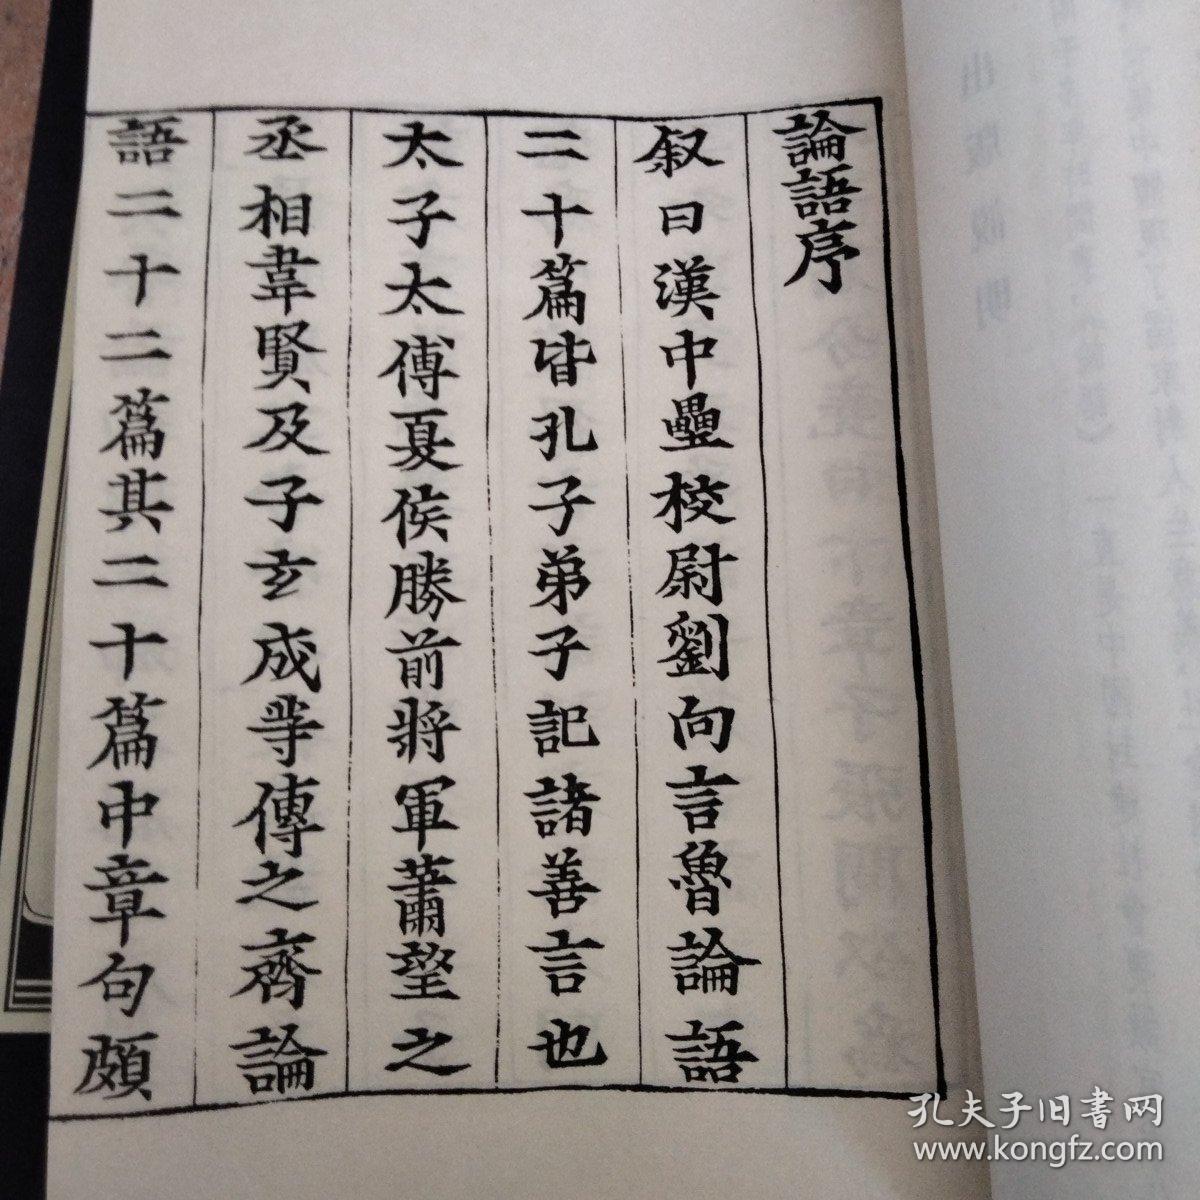 論語序
叙曰漢中壘校尉劉向言魯論語
二十篇皆孔子弟子記諸善言也
太子太傅夏侯勝前將軍蕭望之
丞相韋賢及子玄成等傳之齊論
語二十二篇其二十篇中章句頗
出版说明
孔夫子旧书网
www.kongfz.com